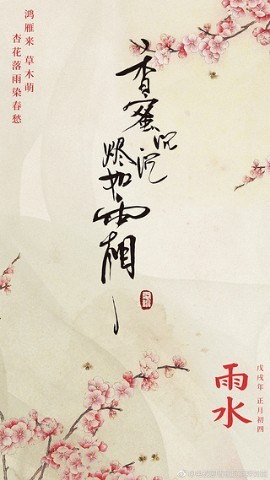 鸿雁来 草木萌
杏花落雨染春愁
香蜜沉沉
烬如霜
雨水
戊戌年 正月初四